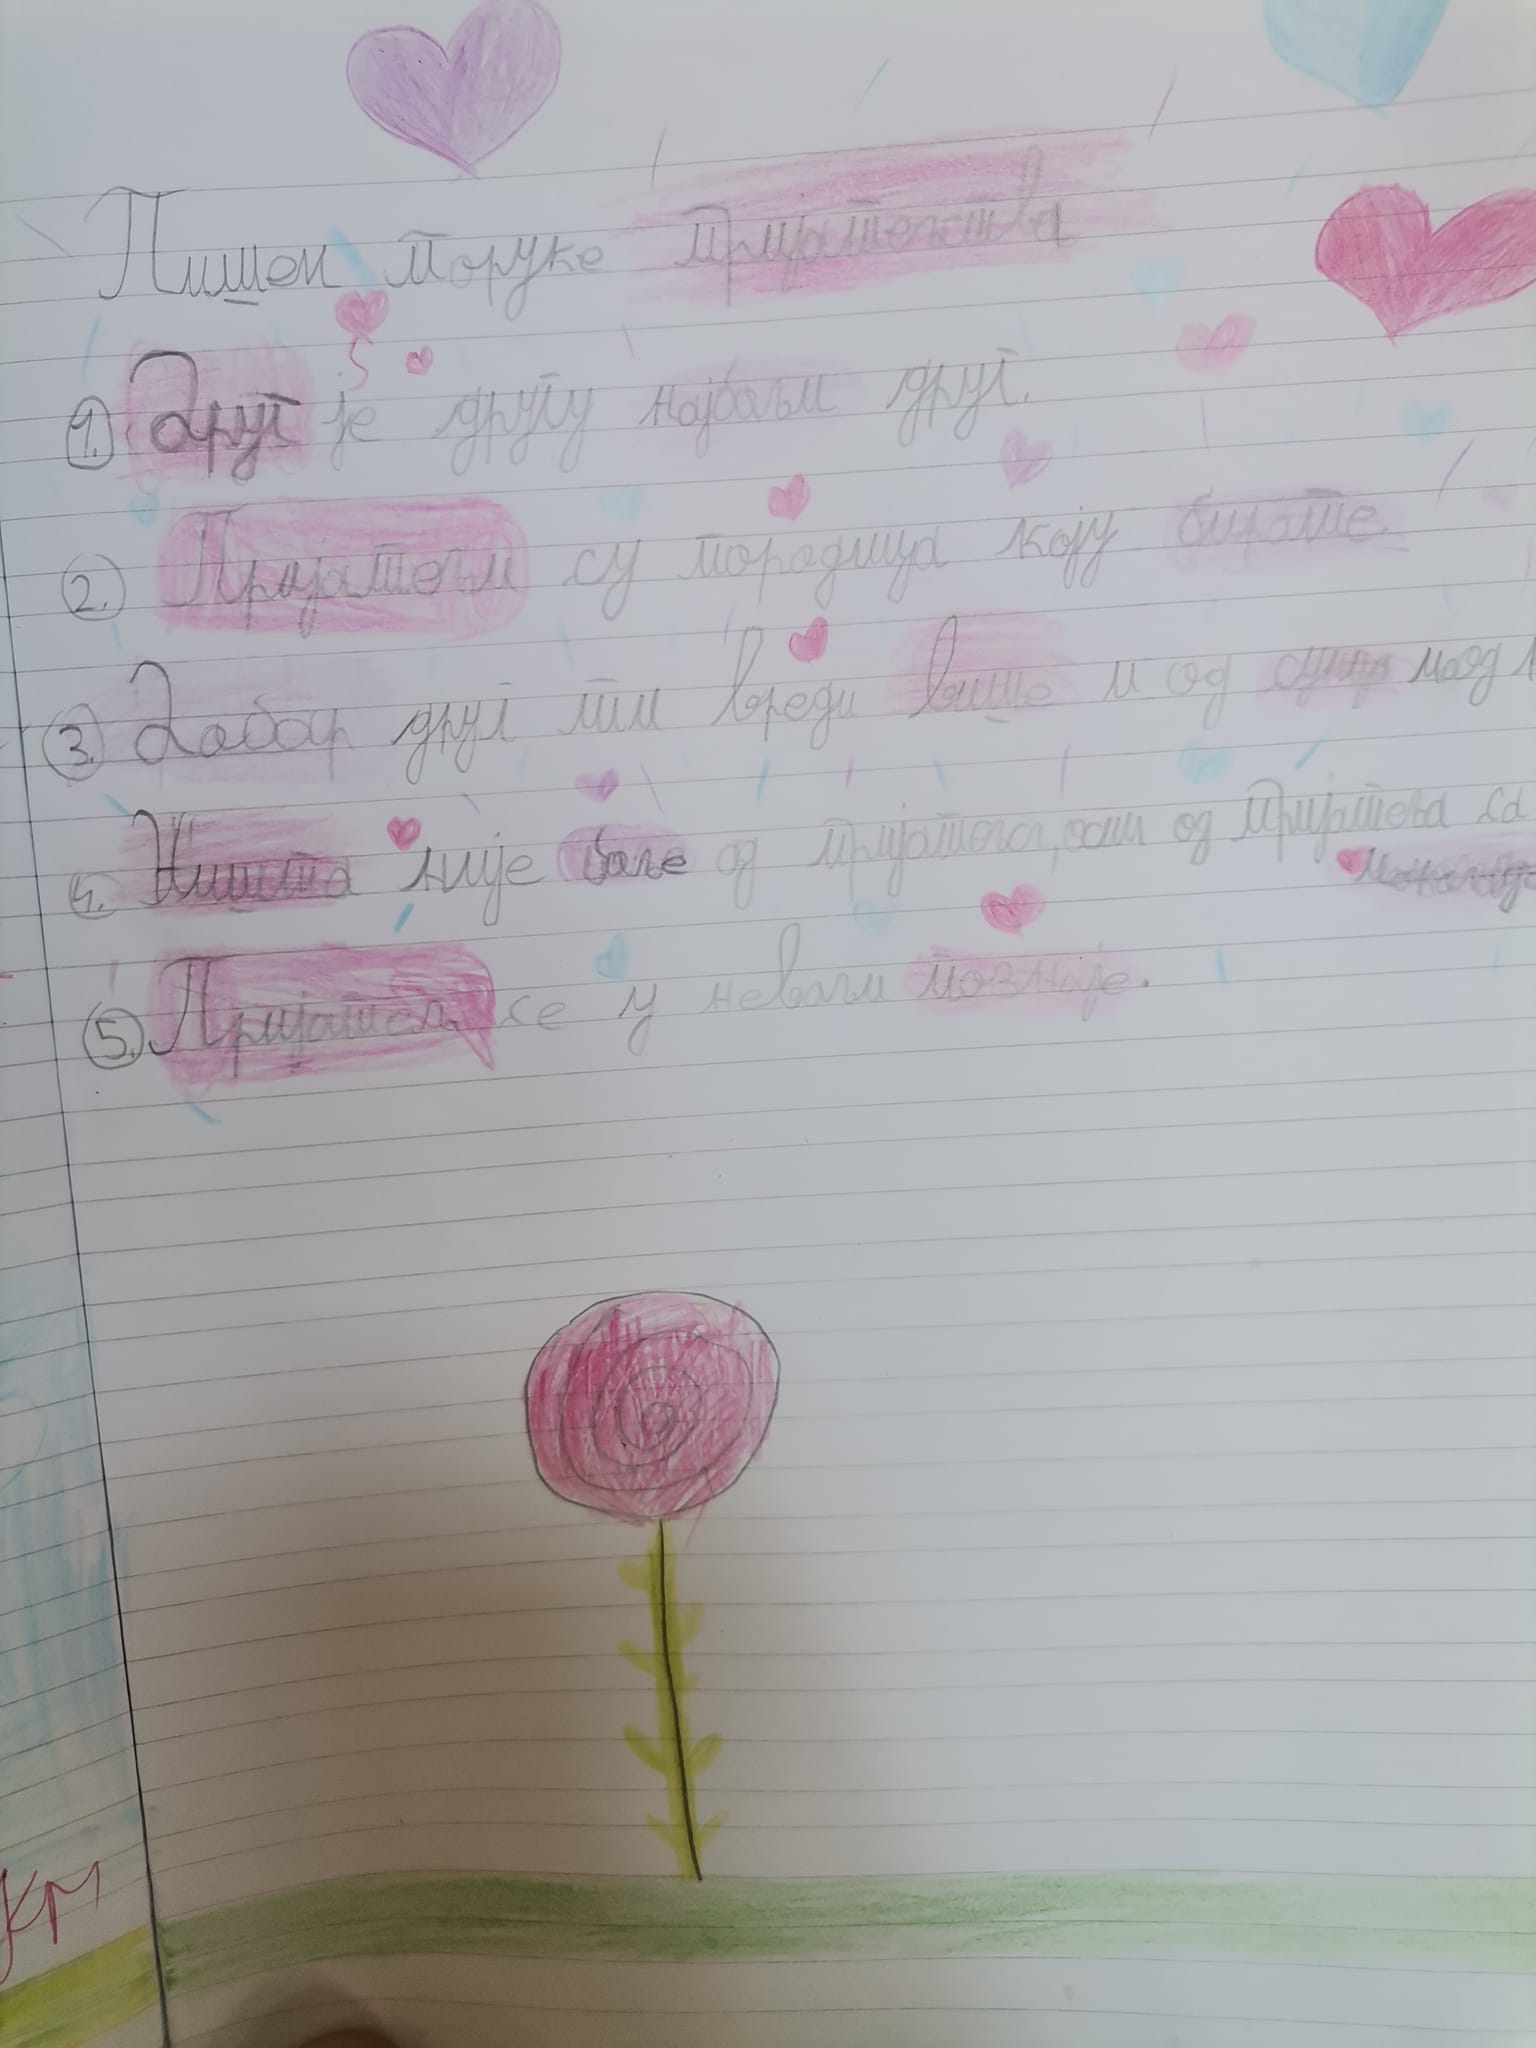 Пишем поруке пријатељства
1. Друг је другу најбољи друг.
2. Пријатељи су породица коју бирате.
3. Добар друг ми вреди више и од сунца
4. Ништа није боље од пријатеља, осим од пријатеља са
чоколадом
5. Пријатељ се у невољи познаје.
КМ